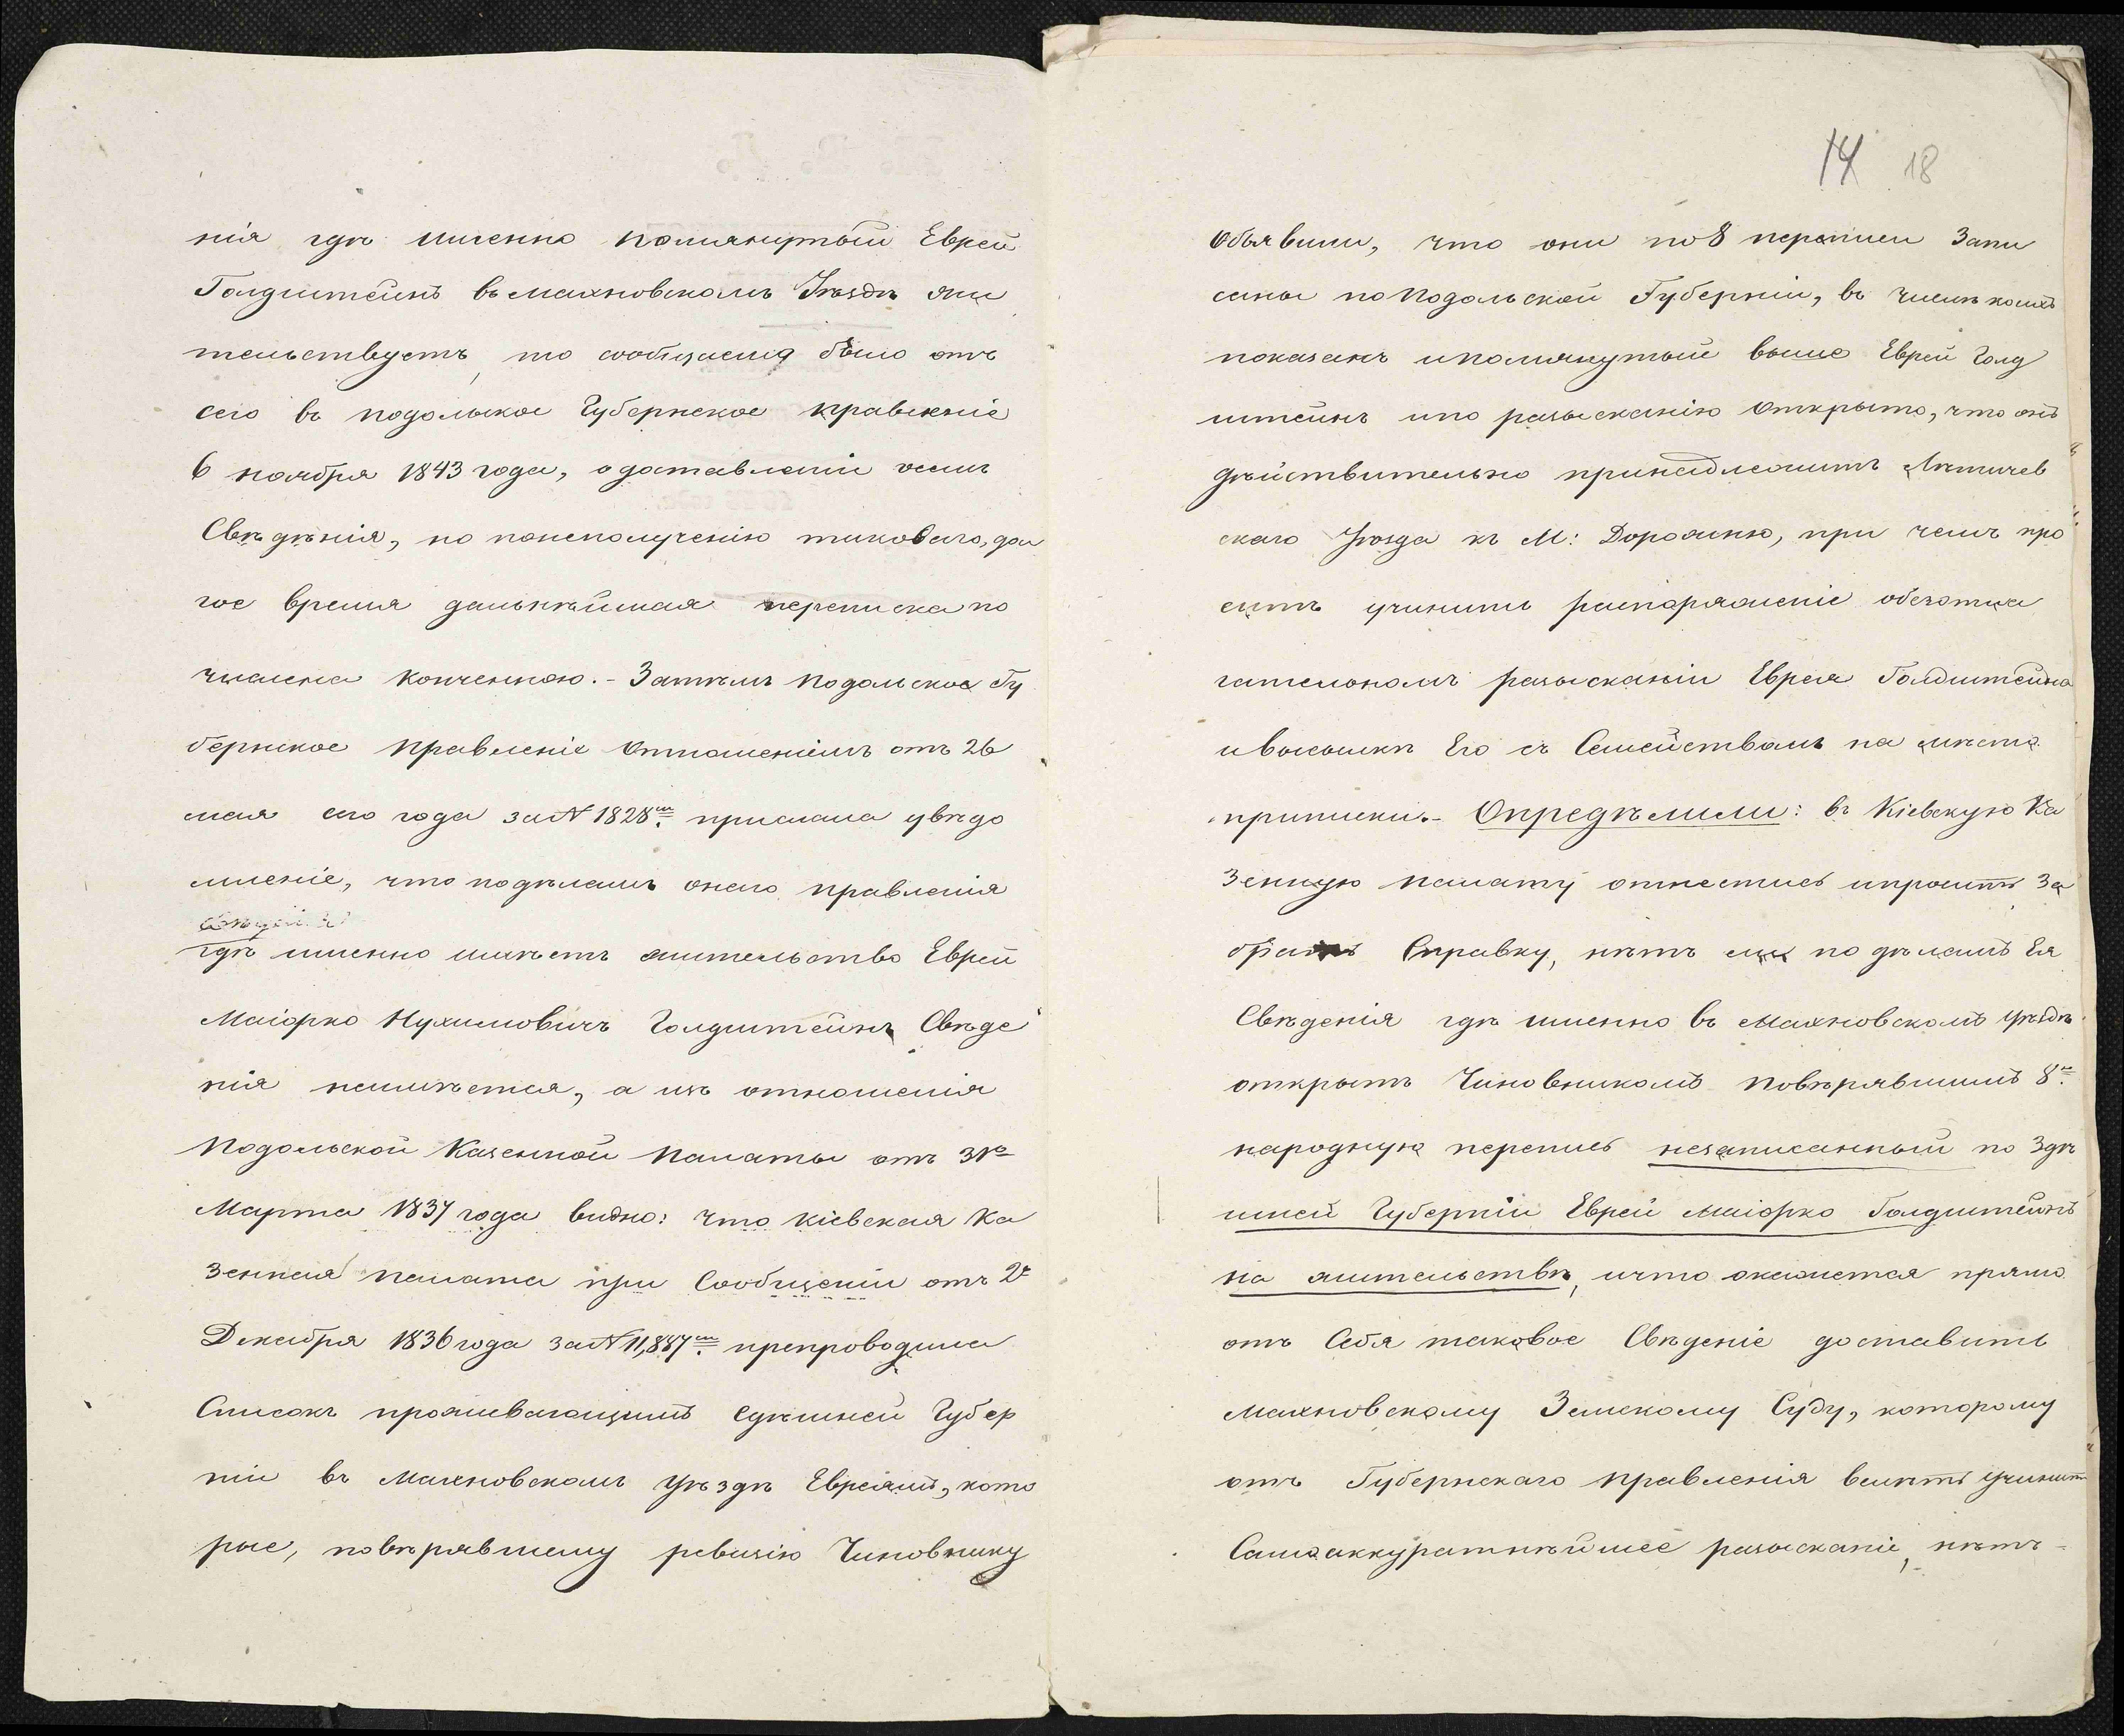 нія гдѣ именно помянутый Еврей
Голдштейнъ въ Махновскомъ Уѣздѣ жи
тельствуетъ, то сообщаемо было отъ
сего въ подольское Губернское правленіе
6 ноября 1843 года, о доставленіи осемъ
Свѣдѣнія, но понеполученію таковаго, дол
гое время дальнѣйшая переписка по
числена конченною. - Затѣмъ подольское Гу
бернское правленіе Отношеніемъ отъ 26
мая сего года за N 1828ш. прислала увѣдо
мленіе, что подѣламъ онаго правленія
гдѣ именно имѣетъ жительство Еврей
Маіорко Нухимовичъ Голдштейнъ Свѣде
нія неимѣется, а изъ отношенія
Подольской Казенной Палаты отъ 31го
Марта 1837 года видно: что кіевская Ка
зенная палата при Сообщеніи отъ 2г
Декабря 1836 года за N 11,887ш. препроводила
Списокъ проживающимъ Сдѣшней Губер
ніи въ Махновскомъ Уѣздѣ Евреямъ, кото
рые, повѣрявшему ревизію Чиновнику
14 18
Объявили, что они по 8 переписи Запи
саны по Подольской Губерніи, въ числѣ коихъ
показанъ ипомянутый выше Еврей Голд
штейнъ ипо разысканію Открыто, что онъ
дѣйствительно принадлежитъ Летичев
скаго Уѣзда къ М: Дорожню, при чемъ про
ситъ учинить распоряженіе обезотла
гательномъ разысканіи Еврея Голдштейна
ивысылкѣ Его съ Семействомъ на мѣсто
приписки. - Опредѣлили: въ Кіевскую Ка
Зенную палату отнестись ипросить За
брать Справку, нѣтъ ли по дѣламъ Ея
Свѣденія гдѣ именно въ Махновскомъ уѣздѣ
открытъ Чиновникомъ Повѣрявшимъ 8ю.
народную перепись незаписанный по Здѣ
шней Губерніи Еврей Маіорко Голдштейнъ
на жительствѣ, ичто окажется прямо
отъ Себя таковое Свѣденіе доставить
Махновскому Земскому Суду, которому
отъ Губернскаго правленія велѣть учинить
Самоаккуратнѣйшее разысканіе, нѣтъ-